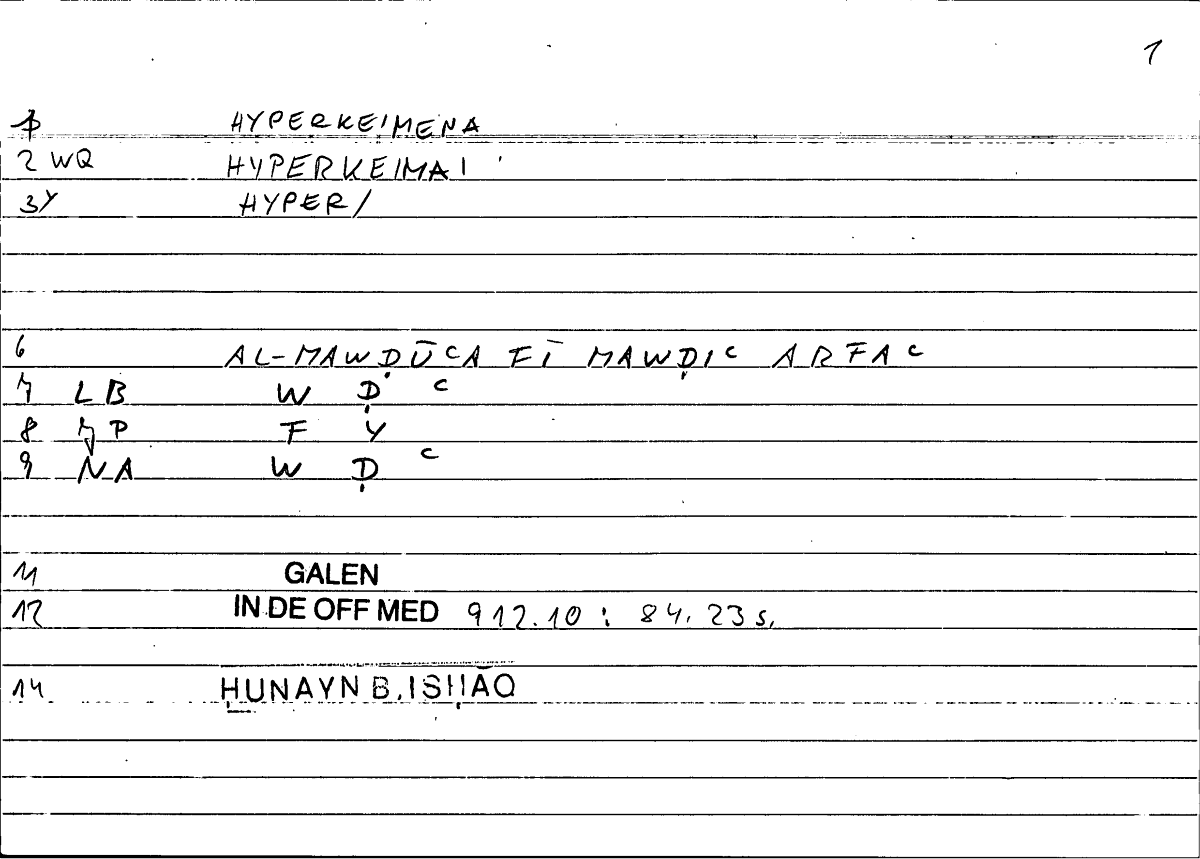 1
1 HYPERKEIMENA
2 WQ HYPERKEIMAI
3Y HYPER/
6 AL-MAWḌŪCA FĪ MAWḌIC ARFAC
7 LB W Ḍ C
8 7P F Y
9 NA W Ḍ C
11 GALEN
12 IN DE OFF MED 912.10 : 84.23 s.
14 ḤUNAYN B. ISḤĀQ